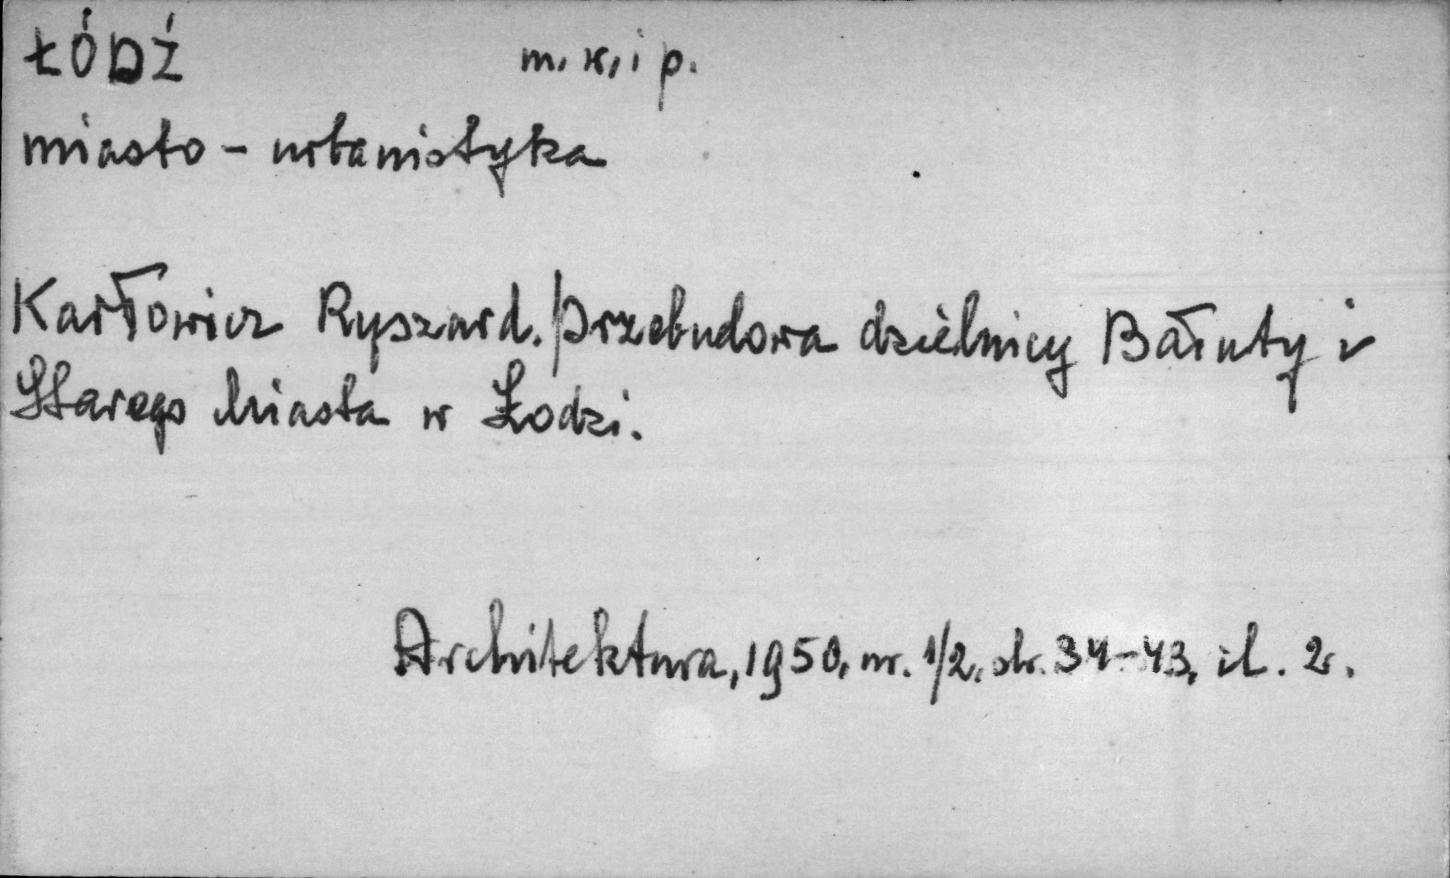 ŁÓDŹ m. w, i p.
miasto - urbanistyka
Karłowicz Ryszard. Przebudowa dzielnicy Bałuty i
Starego Miasta w Łodzi.
Architektura, 1950, nr. 1/2, str. 34-43, il. 2.